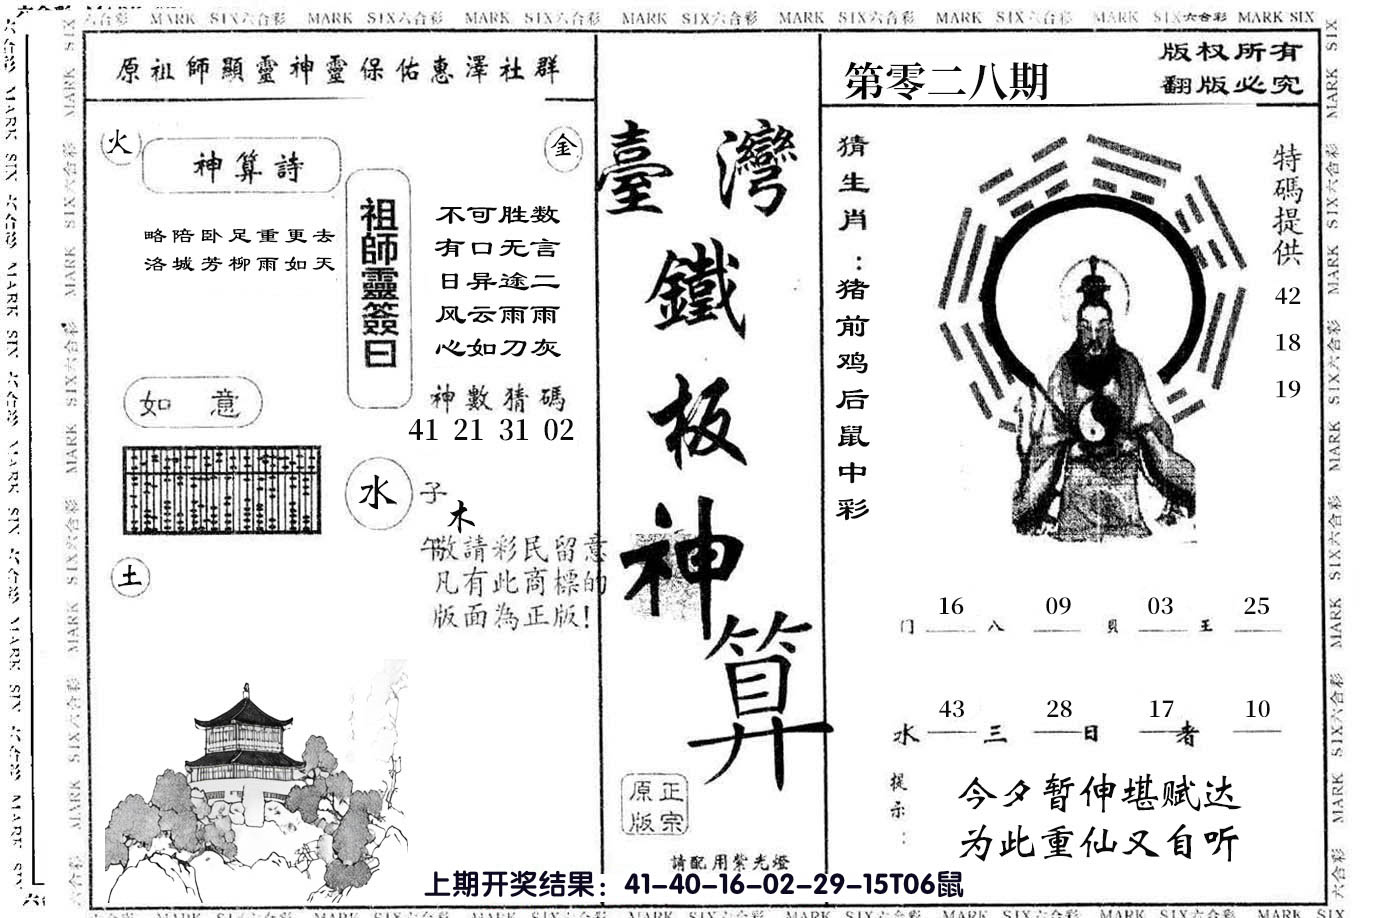 MARK SIX六合彩 MARK SIX六合彩 MARK SIX六合彩 MARK SIX六合彩 MARK SIX六合彩 MARK SIX六合彩 MARK SIX六合彩 MARK SIX
原祖師顯靈神靈保佑惠澤社群
火
金
神算詩
略陪卧足重更去
洛城芳柳雨如天
祖師靈簽曰
不可胜数
有口无言
日异途二
风云雨雨
心如刀灰
神數猜碼
41 21 31 02
如意
水
子
木
午
土
敬請彩民留意
凡有此商標的
版面為正版!
臺灣
鐵
板
神
算
正宗
原版
請配用紫光燈
第零二八期
版权所有
翻版必究
猜生肖：猪前鸡后鼠中彩
特碼提供
42
18
19
16 09 03 25
门 八 贝 王
43 28 17 10
水 三 日 者
提示：
今夕暂伸堪赋达
为此重仙又自听
上期开奖结果：41-40-16-02-29-15T06鼠